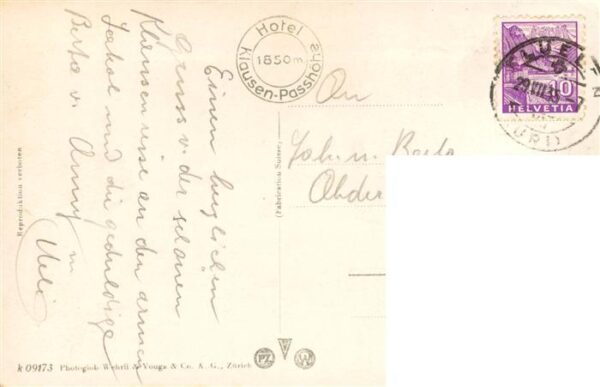 Hotel
Klausen-Passhöhe
1850 m.
FLÜELEN
(URI)
10
HELVETIA
Einen herzlichen
Gruss v. der schönen
Klausenreise an den armen
Jackal und die geduldige
Berta v. Anny
u
Ueli
An
Joh. u. Berta
Reproduktion verboten
(Fabrication Suisse)
k 09173 Photoglob-Wehrli & Vouga & Co. A. G., Zürich
PZ